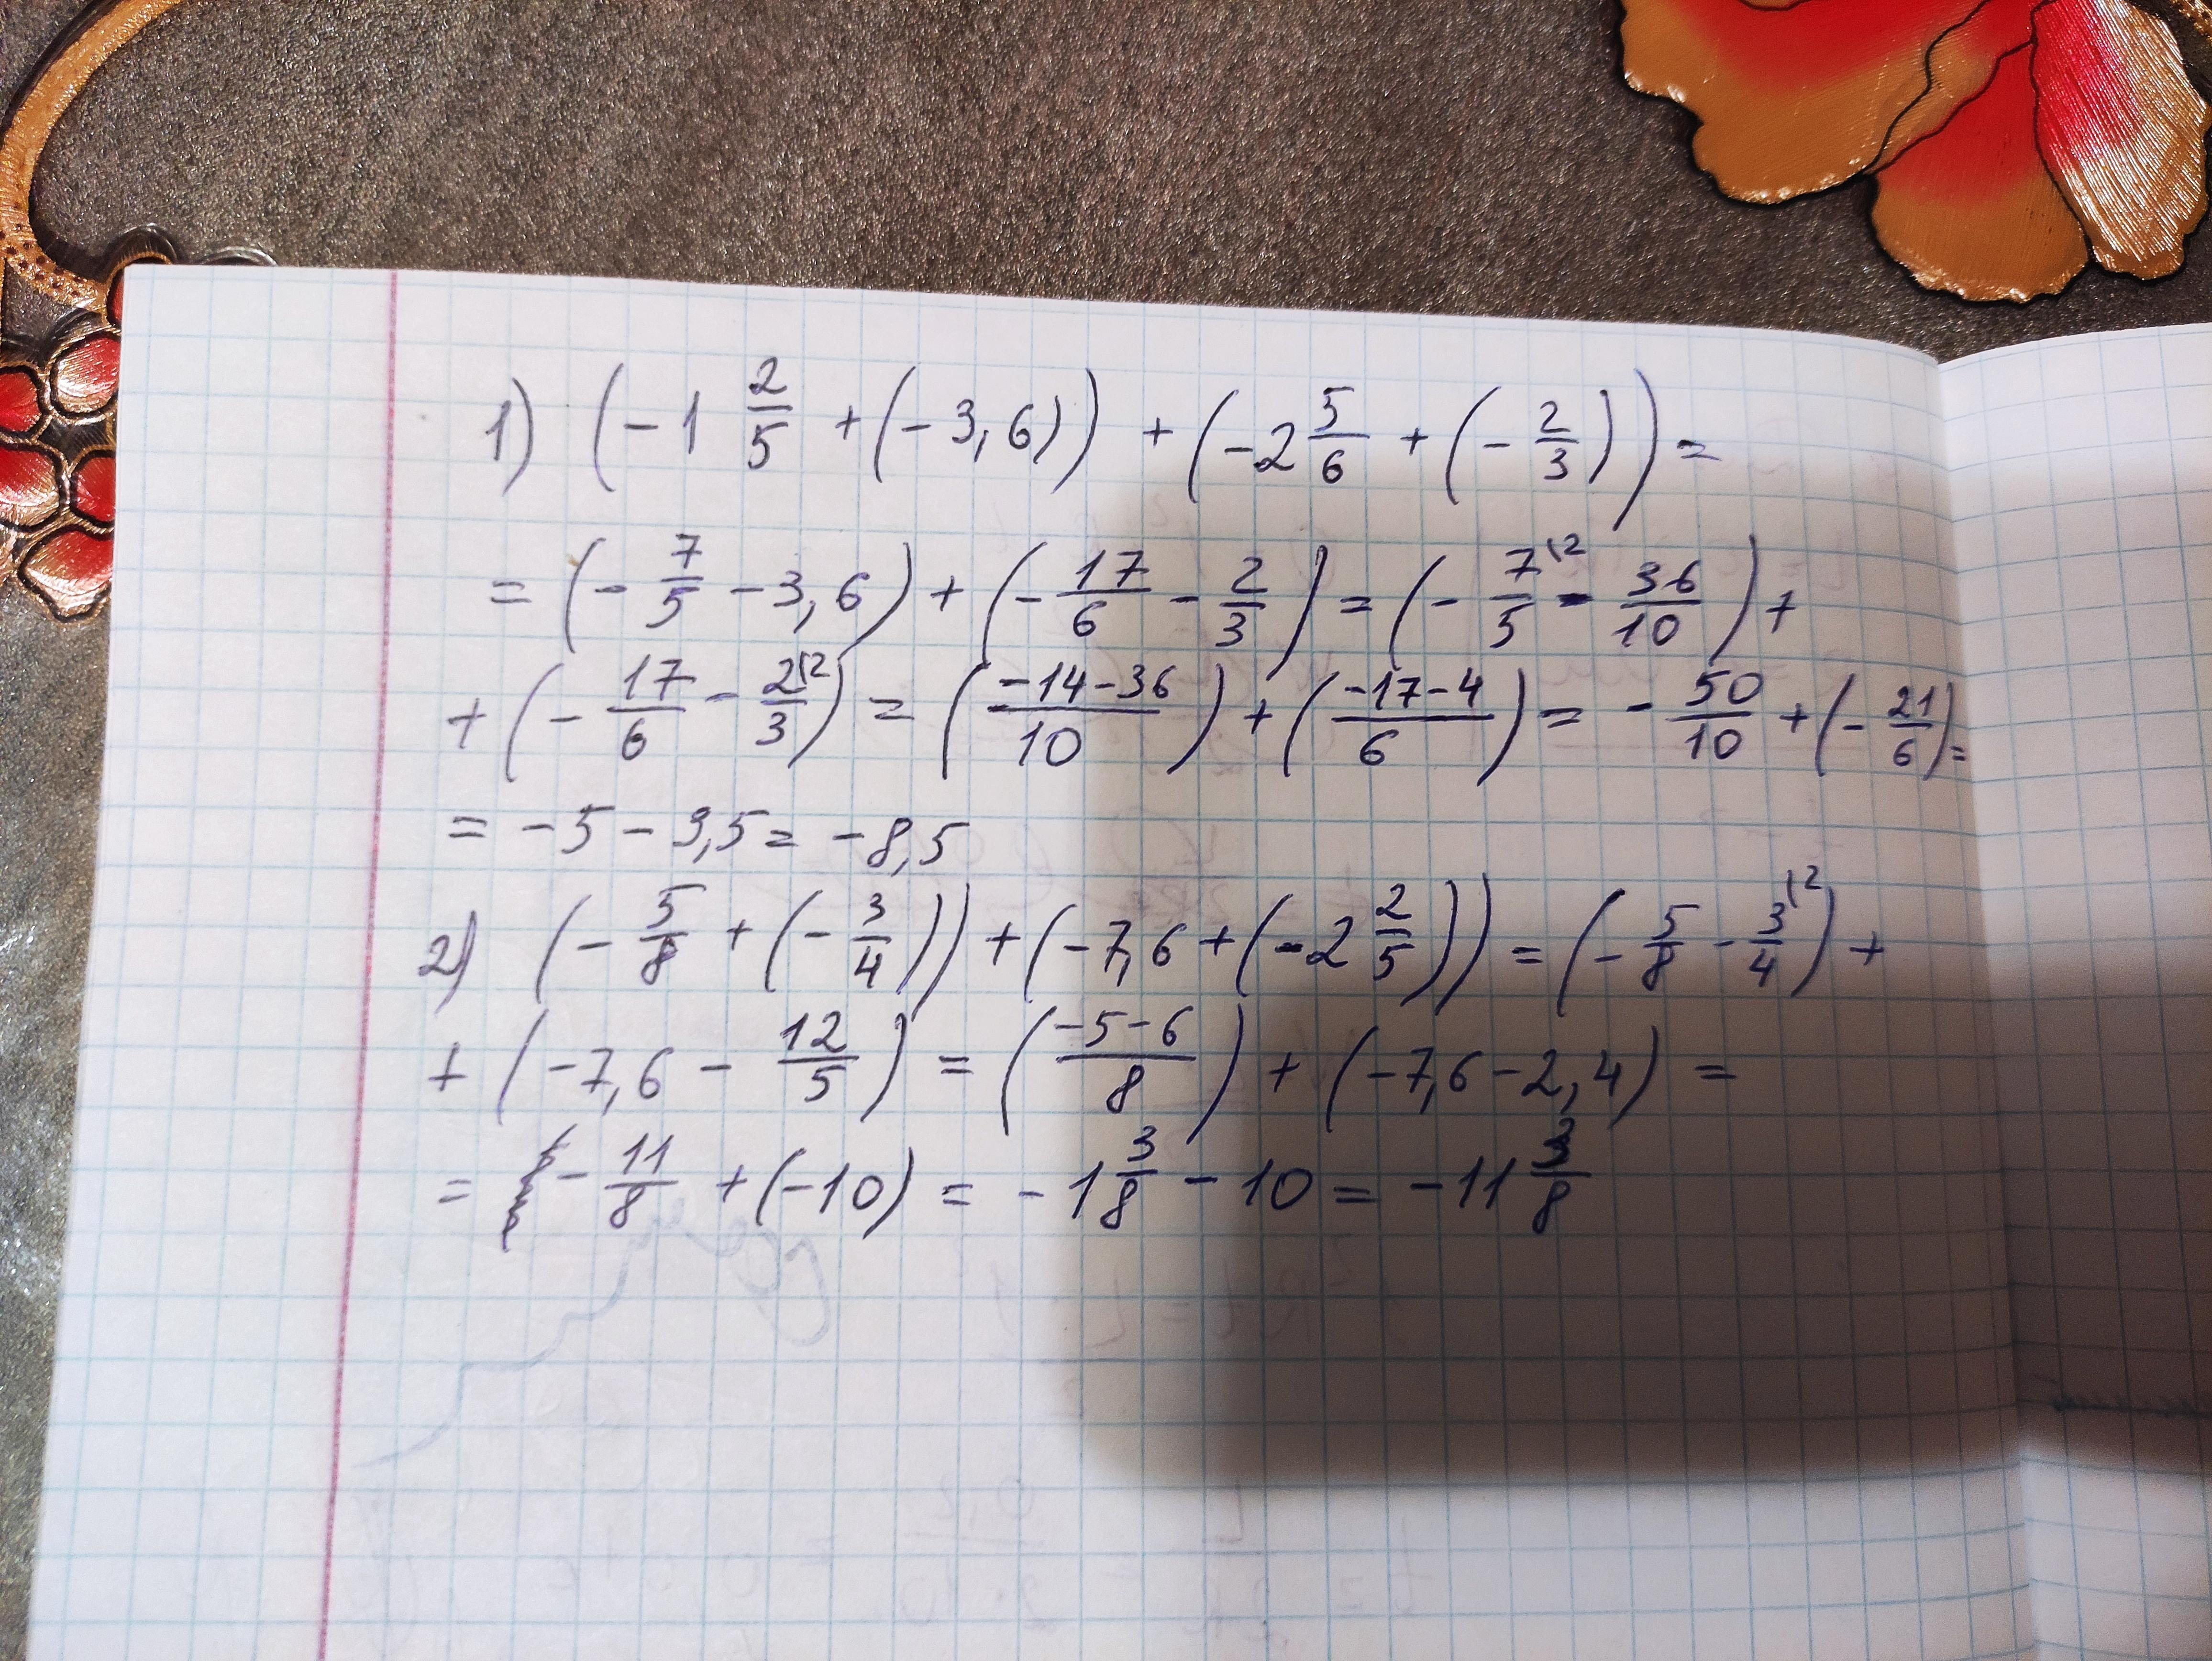 1) (-1 2/5 + (-3,6)) + (-2 5/6 + (-2/3)) =
= (-7/5 - 3,6) + (-17/6 - 2/3) = (-7/5 ^(2 - 36/10) +
+ (-17/6 - 2/3 ^(2) = (-14-36/10) + (-17-4/6) = -50/10 + (-21/6) =
= -5 - 3,5 = -8,5
2) (-5/8 + (-3/4)) + (-7,6 + (-2 2/5)) = (-5/8 - 3/4 ^(2) +
+ (-7,6 - 12/5) = (-5-6/8) + (-7,6 - 2,4) =
= -11/8 + (-10) = -1 3/8 - 10 = -11 3/8